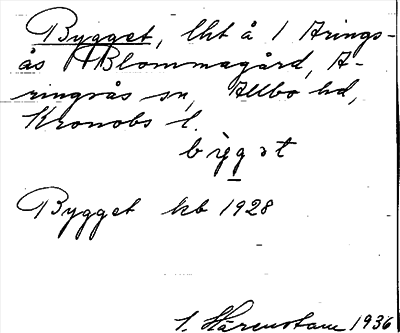 Bygget, lht å 1 Arings-
ås Blommagård, A-
ringsås sn, Allbo hd,
Kronobs l.
bygget
Bygget kb 1928
1936